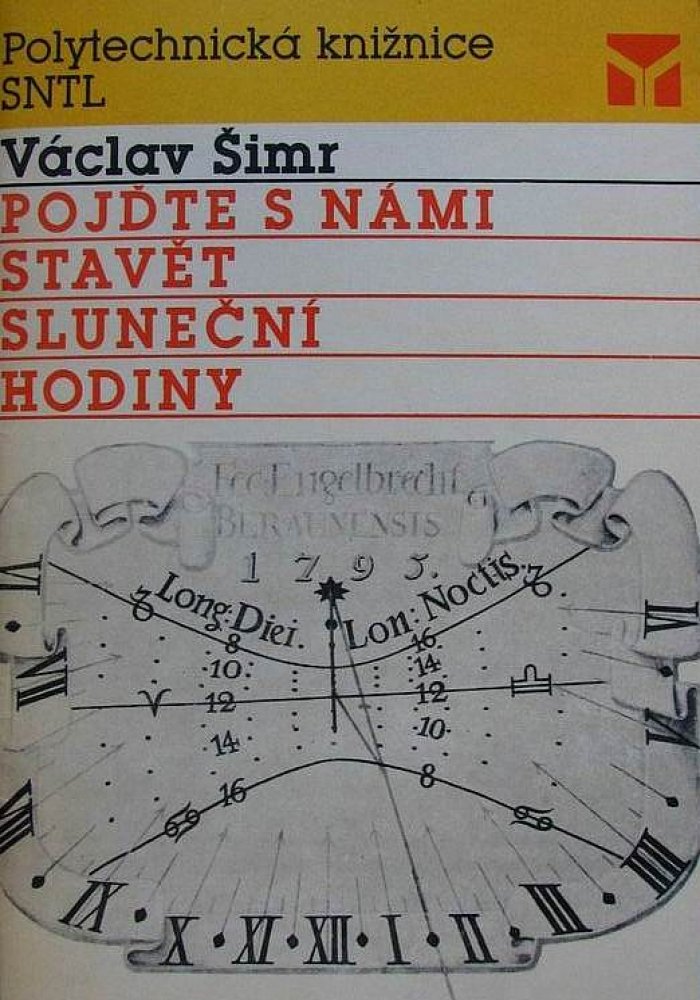 Polytechnická knižnice
SNTL
Václav Šimr
POJĎTE S NÁMI
STAVĚT
SLUNEČNÍ
HODINY
Fec: Engelbrecht
BERAUNENSIS
1795.
Long: Diei. Lon: Noctis.
8 16
10 14
12 12
14 10
16 8
VI VI
VII
VIII
IX X XI XII I II III IIII